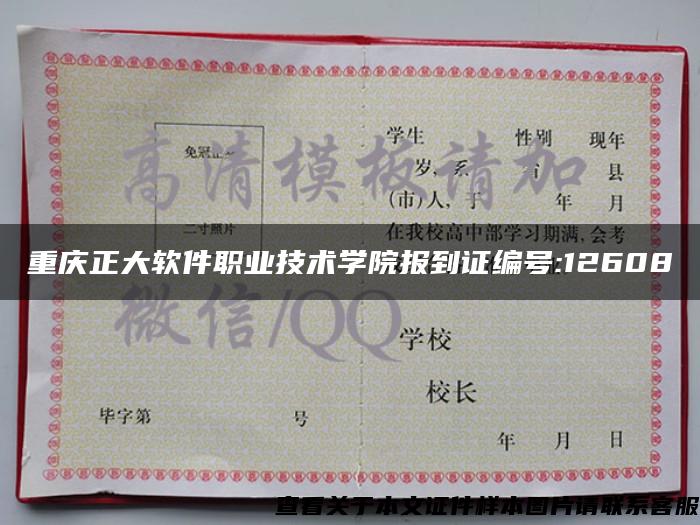 学生 性别 现年
岁, 系 省 县
(市)人, 于 年 月
在我校高中部学习期满, 会考
免冠正
二寸照片
高清模板请加
重庆正大软件职业技术学院报到证编号:12608
微信/QQ
学校
校长
毕字第 号
年 月 日
查看关于本文证件样本图片请联系客服